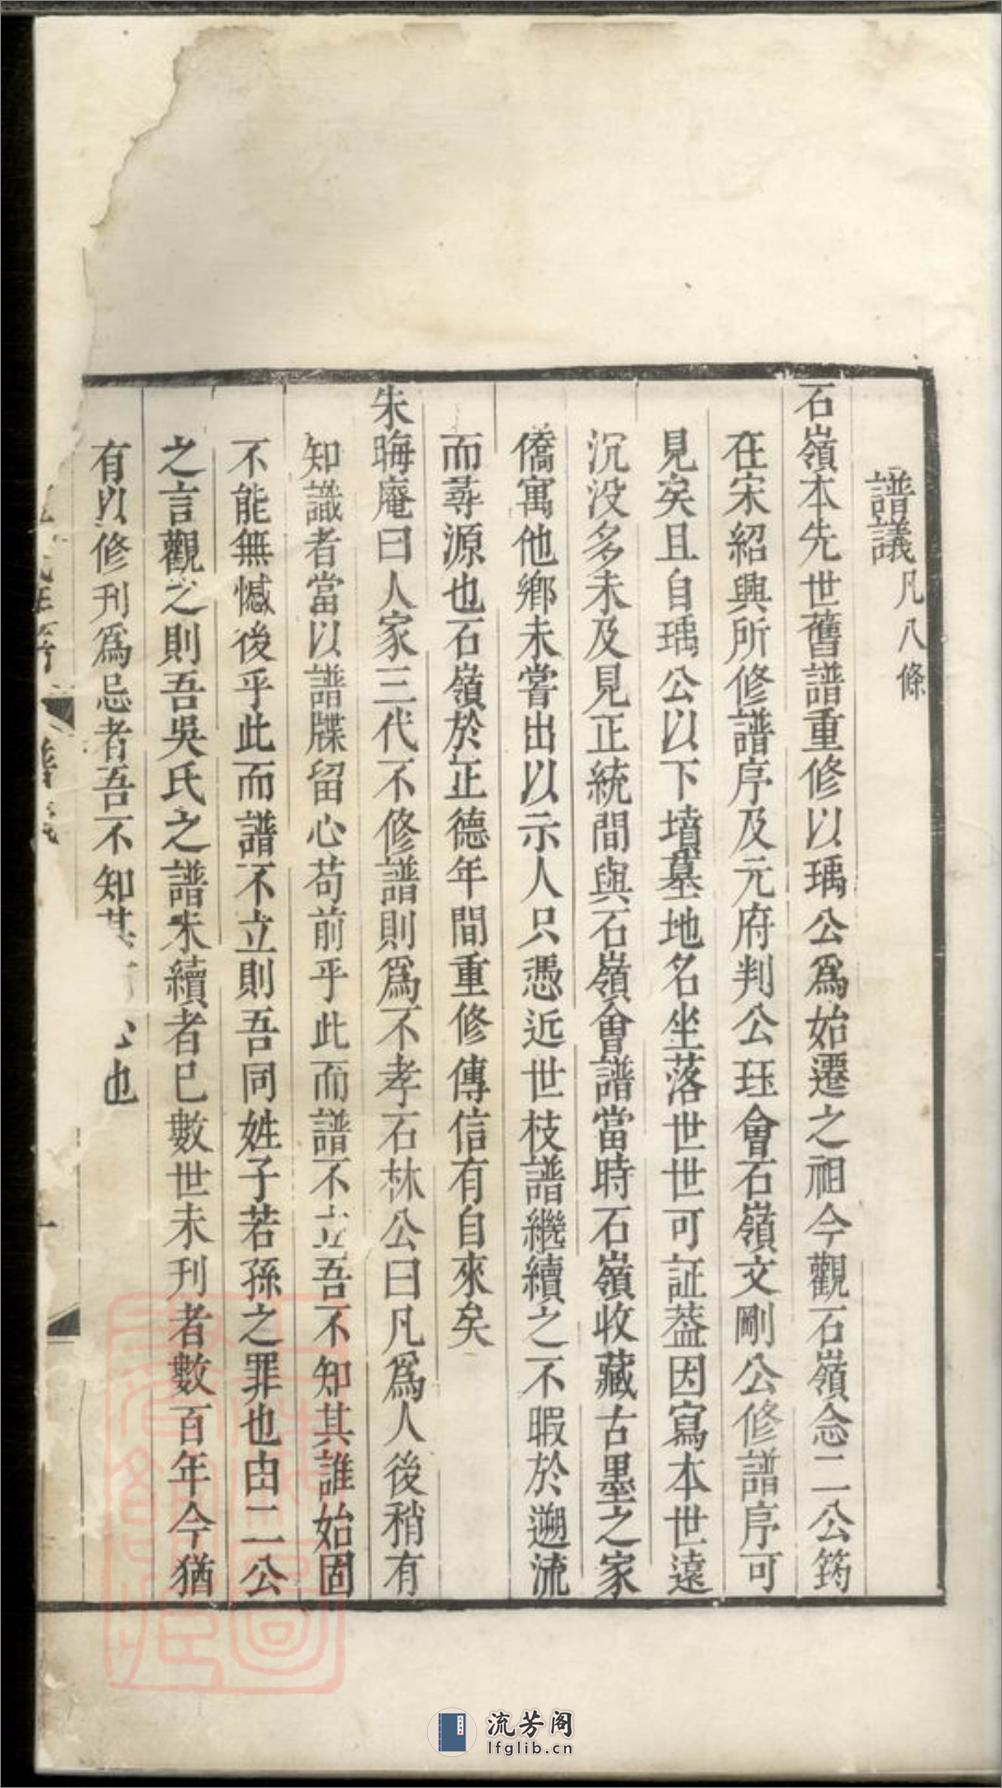 譜議凡八條
石嶺本先世舊譜重修以瑀公爲始遷之祖今觀石嶺念二公筠
在宋紹興所修譜序及元府判公珏會石嶺文剛公修譜序可
見矣且自瑀公以下墳墓地名坐落世世可証葢因寫本世遠
沉没多未及見正統間與石嶺會譜當時石嶺收藏古墨之家
僑寓他鄉未嘗出以示人只憑近世枝譜繼續之不暇於遡流
而尋源也石嶺於正德年間重修傳信有自來矣
朱晦庵曰人家三代不修譜則爲不孝石林公曰凡爲人後稍有
知識者當以譜牒留心苟前乎此而譜不立吾不知其誰始固
不能無憾後乎此而譜不立則吾同姓子若孫之罪也由二公
之言觀之則吾吳氏之譜未續者已數世未刊者數百年今猶
有以修刊爲忌者吾不知其也
流芳阁
lfglib.cn